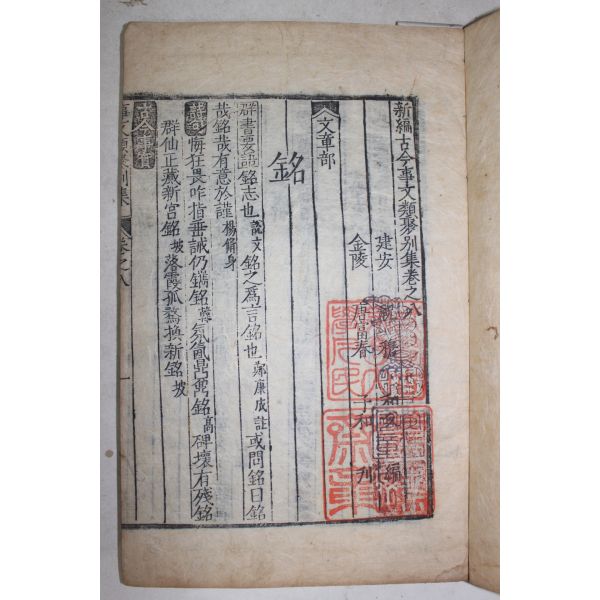 新編古今事文類聚別集卷之八
建安 祝穆 和父 編
金陵 唐富春 子和 刋
文章部
銘
群書要語 銘志也 說文 銘之爲言銘也 鄭康成註 或問銘曰銘
哉銘哉有意於謹 楊脩身
悔狂畏咋指垂誡仍鐫銘 韓 氛氳鼎寓銘 高 碑壞有殘銘
群仙正藏新宮銘 坡 落霞孤鶩換新銘 坡
卷之八